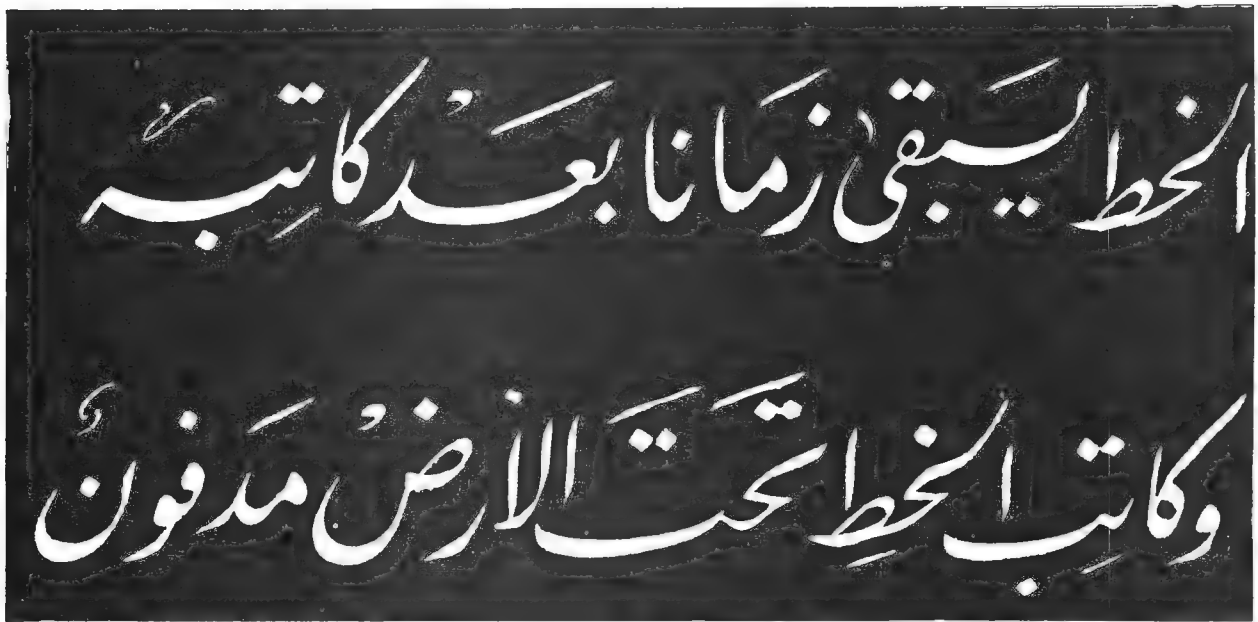 الخط يَبقى زَمانا بعَدْ كاتِبهٌ
وكاتِب الخطِ تَحتَ الارضْ مَدفونٌ